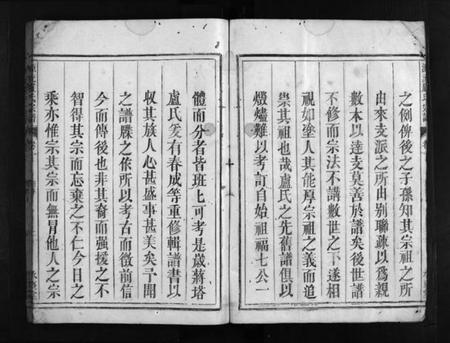 之例俾後之子孫知其宗祖之所
由來支派之所由別聯疎以為親
數本以達支莫善於譜矣後世譜
不修而宗法不講數世之下遂相
視如塗人其能摩宗祖之義而追
崇其祖也哉盧氏之先舊譜俱以
燬爐難以考訂自始祖福七公一
體而分者皆班上可考是歲蔣塔
盧氏爰有春成等重修輯譜書以
収其族人心甚盛事甚美矣予聞
之譜牒之作所以考古而徴前信
今而傳後也非其裔而强援之不
智得其宗而忘棄之不仁今日之
乘亦惟宗其宗而無冒他人之宗